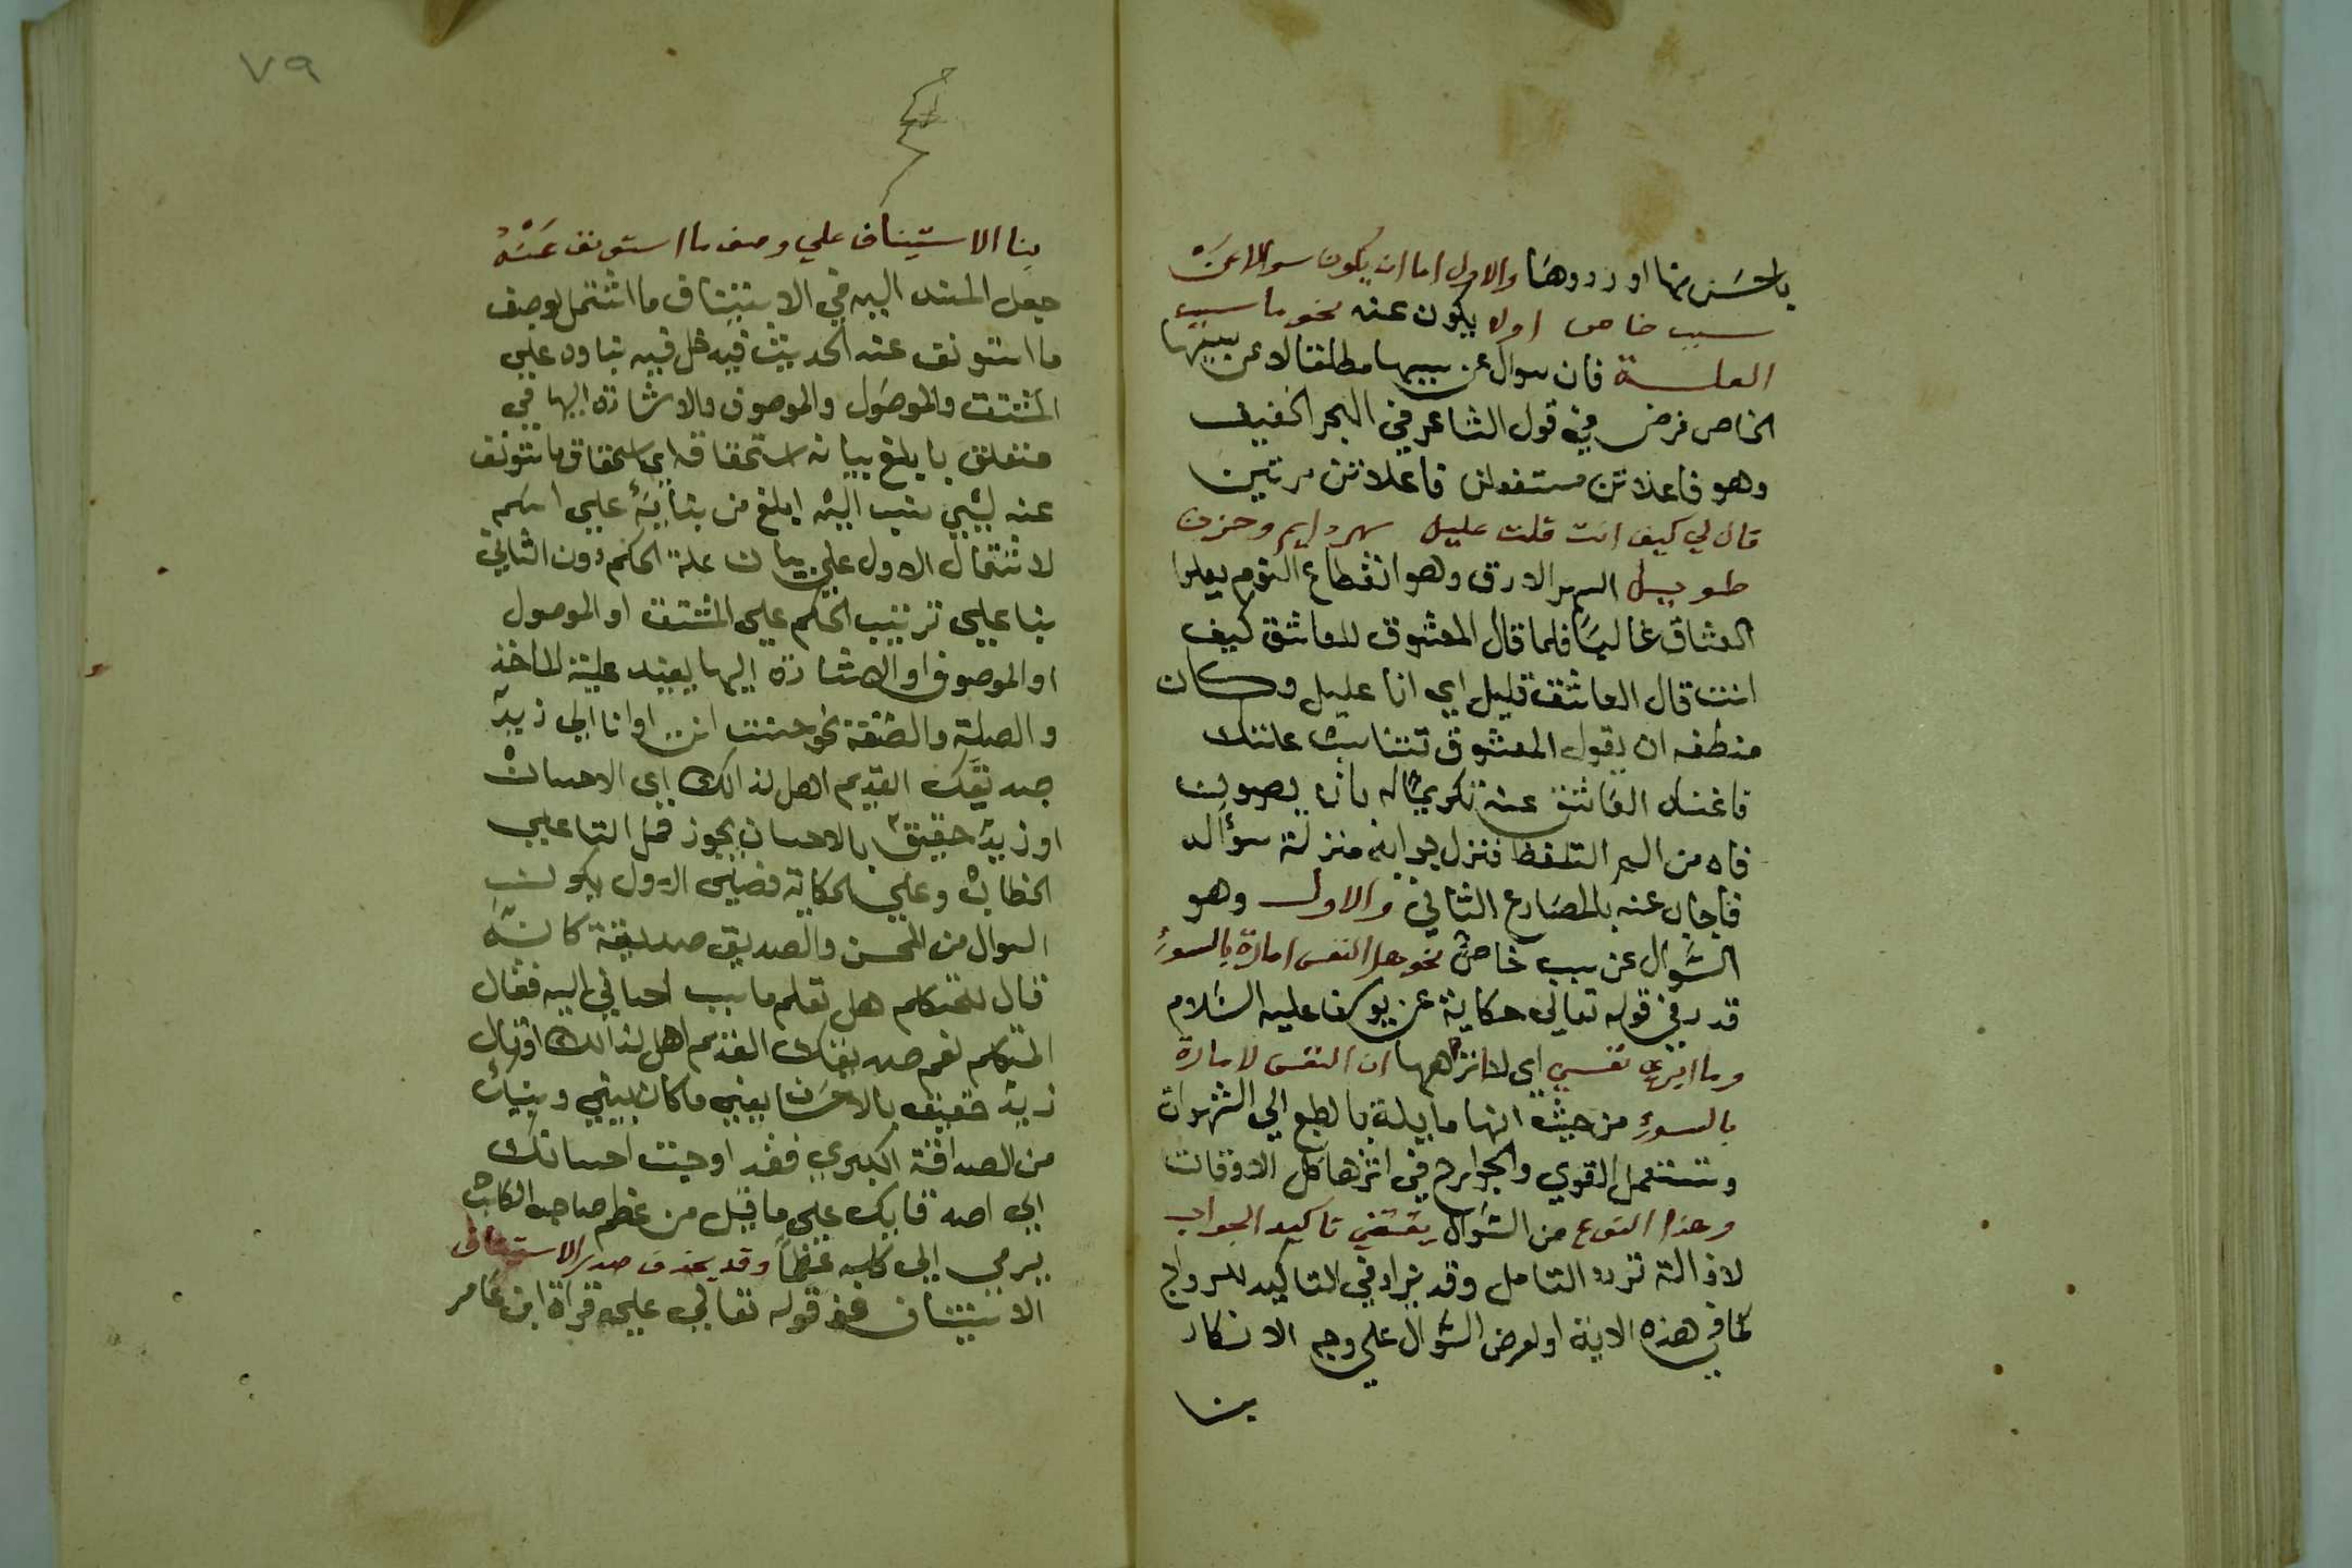 باحسن منها او ردوها والاول اما ان يكون سوالا عن
سبب خاص اولا يكون عنه نحو ما سبب
العلة فان سوال عن سببها مطلقا لا عن سببها
الخاص فرض في قول الشاعر في البحر الخفيف
وهو فاعلاتن مستفعلن فاعلاتن مرتين
قال لي كيف انت قلت عليل سهر دايم وحزن
طويل السهر الارق وهو انقطاع النوم
العشاق غالبا فلما قال المعشوق للعاشق كيف
انت قال العاشق قليل اي انا عليل وكان
ان يقول المعشوق علتك
العاشق عنه تكريما له بان يصون
فاه من التلفظ فنزل جوابه منزلة سؤاله
فاجاب عنه بالمصارع الثاني والاول وهو
السؤال عن سبب خاص نحو هل النفس امارة بالسوء
قدر في قوله تعالى حكاية عن يوسف عليه السلام
وما ابرئ نفسي اي لا انزهها ان النفس لامارة
بالسوء من حيث انها مايلة بالطبع الي الشهوات
وتستعمل القوي والجوارح في اثرها كل الاوقات
وهذا النوع من السؤال يقتضي تاكيد الجواب
لازالة تردد التامل وقد يزاد في التاكيد للرواج
كما في هذه الاية او لعرض السؤال علي وجه الانكار
بنا
٧٩
بنا الاستيناف علي وصف ما استونف عنه
جعل المسند اليه في الاستيناف ما اشتمل لوصف
ما استونف عنه الحديث فيه علي
المشتق والموصول والموصوف والاشارة اليها في
متعلق بابلغ بيانه استحقاقه اي استحقاق ما استونف
عنه لشي نسب اليه ابلغ من بنايه علي اسم
لاشتمال الاول علي بيان علة الحكم دون الثاني
بنا علي ترتيب الحكم علي المشتق او الموصول
او الموصوف او الاشارة اليها يفيد علية الماخذ
والصلة والصفة نحو احسنت انت او انا الي زيد
صديقك القديم اهل لذالك اي الاحسان
او زيد حقيق بالاحسان يجوز حمل التا علي
الخطاب وعلي الحكاية فعلي الاول يكون
السوال من المحسن والصديق صديقه كانه
قال للمتكلم هل تعلم ما سبب احساني اليه فقال
المتكلم نعم صديقك القديم اهل لذالك او قال
زيد حقيق بالاحسان يعني ما كان بيني وبينك
من الصداقة الكبري فقد اوجبت احسانك
الي اصدقايك علي ما قيل من عظم صاحب الكلب
يرمي الي كلبه عظما وقد يحذف صدر الاستيناف
الاستيناف نحو قوله تعالي علي قراة ابن عامر